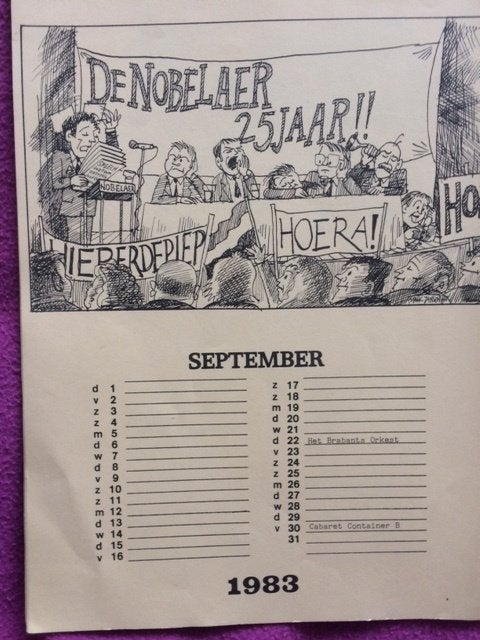 DE NOBELAER
25 JAAR!!
NOBELAER
HIEPERDEPIEP
HOERA!
HO
SEPTEMBER
d 1
v 2
z 3
z 4
m 5
d 6
w 7
d 8
v 9
z 10
z 11
m 12
d 13
w 14
d 15
v 16
z 17
z 18
m 19
d 20
w 21
d 22 Het Brabants Orkest
v 23
z 24
z 25
m 26
d 27
w 28
d 29
v 30 Cabaret Container B
31
1983